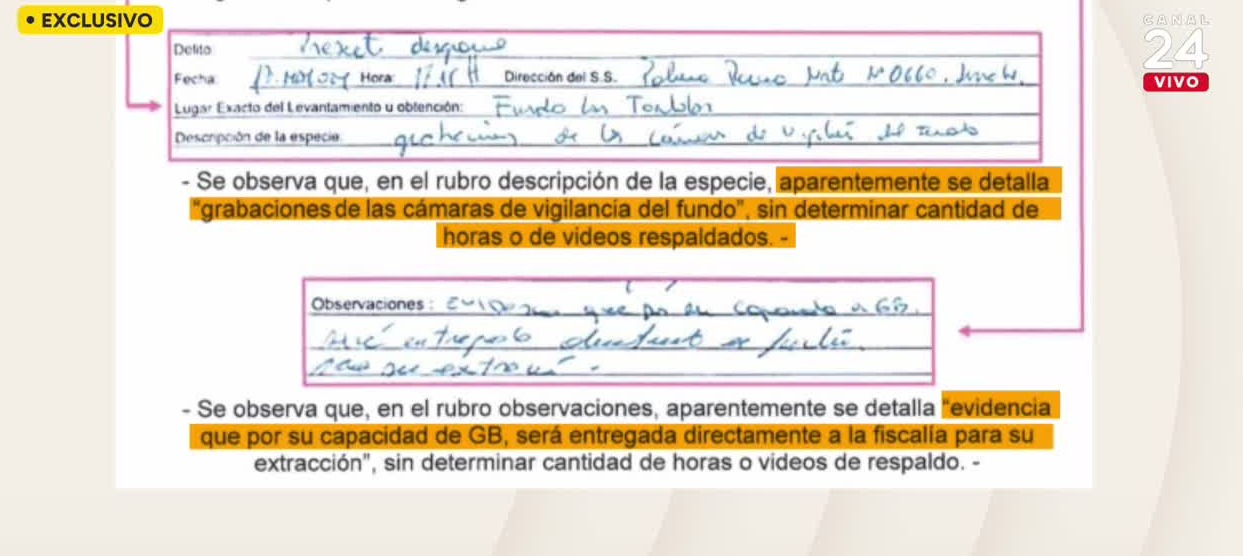 • EXCLUSIVO
CANAL
24
VIVO
Delito
Fecha: Hora: 17.15 H Dirección del S.S. Nº 0660.
Lugar Exacto del Levantamiento u obtención: Fundo
Descripción de la especie: de las cámaras de del fundo
- Se observa que, en el rubro descripción de la especie, aparentemente se detalla
"grabaciones de las cámaras de vigilancia del fundo", sin determinar cantidad de
horas o de videos respaldados. -
Observaciones : Evidencia que por su capacidad de GB.
será entregada directamente a fiscalía
para su extracción.
- Se observa que, en el rubro observaciones, aparentemente se detalla "evidencia
que por su capacidad de GB, será entregada directamente a la fiscalía para su
extracción", sin determinar cantidad de horas o videos de respaldo. -